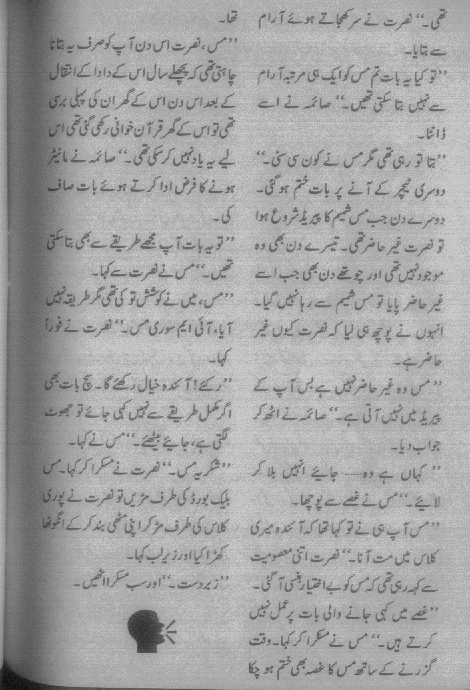 تھی۔‘‘ نصرت نے سر کھجاتے ہوئے آرام
سے بتایا۔
’’تو کیا یہ بات تم مس کو ایک ہی مرتبہ آرام
سے نہیں بتا سکتی تھیں۔‘‘ صائمہ نے اسے
ڈانٹا۔
’’بتا تو رہی تھی مگر مس نے کون سی سنی۔‘‘
دوسری ٹیچر کے آنے پر بات ختم ہو گئی۔
دوسرے دن جب مس شمیم کا پیریڈ شروع ہوا
تو نصرت غیر حاضر تھی۔ تیسرے دن بھی وہ
موجود نہیں تھی اور چوتھے دن بھی جب اسے
غیر حاضر پایا تو مس شمیم سے رہا نہیں گیا۔
انہوں نے پوچھ ہی لیا کہ نصرت کیوں غیر
حاضر ہے۔
’’مس وہ غیر حاضر نہیں ہے بس آپ کے
پیریڈ میں نہیں آتی ہے۔‘‘ صائمہ نے اٹھ کر
جواب دیا۔
’’کہاں ہے وہ —— جایئے انہیں بلا کر
لایئے۔‘‘ مس نے غصے سے پوچھا۔
’’مس آپ ہی نے تو کہا تھا کہ آئندہ میری
کلاس میں مت آنا۔‘‘ نصرت اتنی معصومیت
سے کہہ رہی تھی کہ مس کو بے اختیار ہنسی آ گئی۔
’’غصے میں کہی جانے والی بات پر عمل نہیں
کرتے ہیں۔‘‘ مس نے مسکرا کر کہا۔ وقت
گزرنے کے ساتھ مس کا غصہ بھی ختم ہو چکا
تھا۔
’’مس، نصرت اس دن آپ کو صرف یہ بتانا
چاہتی تھی کہ پچھلے سال اس کے دادا کے انتقال
کے بعد اس دن اس کے گھر ان کی پہلی برسی
تھی تو اس کے گھر قرآن خوانی رکھی گئی تھی اس
لیے یہ یاد نہیں کر سکی تھی۔‘‘ صائمہ نے مانیٹر
ہونے کا فرض ادا کرتے ہوئے بات صاف
کی۔
’’تو یہ بات آپ مجھے طریقے سے بھی بتا سکتی
تھیں۔‘‘ مس نے نصرت سے کہا۔
’’مس، میں نے کوشش تو کی تھی مگر طریقہ نہیں
آیا، آئی ایم سوری مس۔‘‘ نصرت نے فوراً
کہا۔
’’رکئے! آئندہ خیال رکھئے گا۔ سچ بات بھی
اگر مکمل طریقے سے نہیں کہی جائے تو جھوٹ
لگتی ہے، جایئے بیٹھئے۔‘‘ مس نے کہا۔
’’شکریہ مس۔‘‘ نصرت نے مسکرا کر کہا۔ مس
بلیک بورڈ کی طرف مڑیں تو نصرت نے پوری
کلاس کی طرف مڑ کر اپنی مٹھی بند کر کے انگوٹھا
کھڑا کیا اور زیر لب کہا۔
’’زبردست۔‘‘ اور سب مسکرا اٹھیں۔